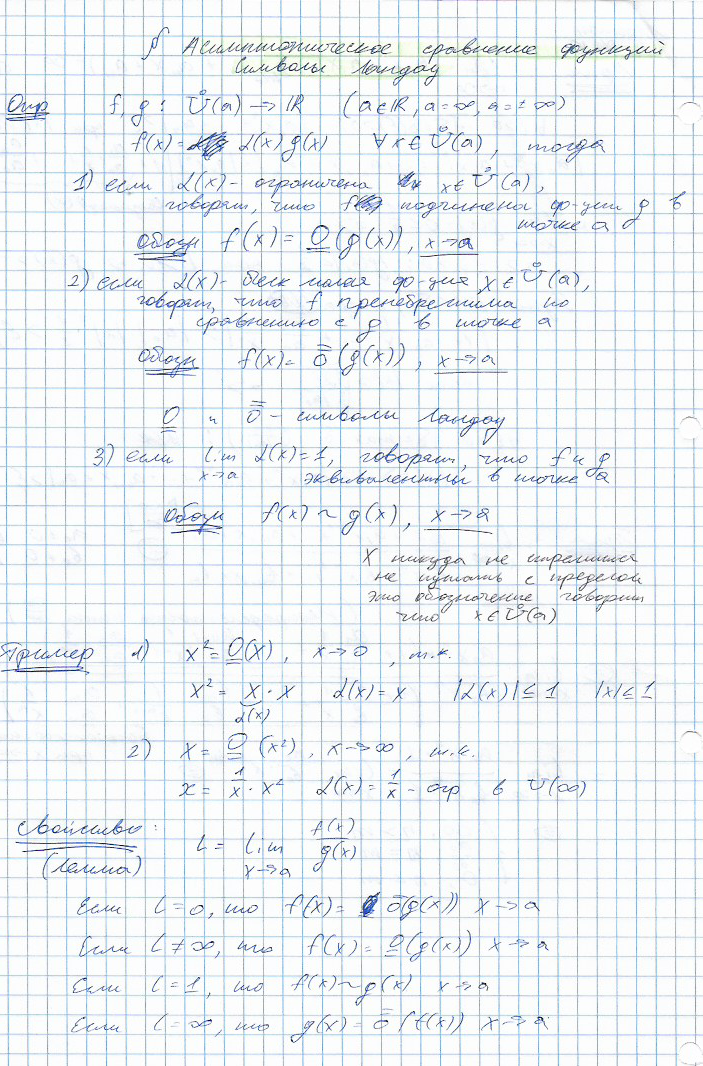 § Асимптотическое сравнение функций
Символы Ландау
Опр f, g : Ů(a) → ℝ (a∈ℝ, a=∞, a=±∞)
f(x) = α(x) g(x) ∀x∈Ů(a), тогда
1) если α(x) - ограничена x∈Ů(a),
говорят, что f подчинена ф-ции g в
точке a
Обозн f(x) = O(g(x)), x→a
2) если α(x) - беск малая ф-ция, x∈Ů(a),
говорят, что f пренебрежима по
сравнению с g в точке a
Обозн f(x) = ō(g(x)), x→a
O и ō - символы Ландау
3) если lim α(x)=1, говорят, что f и g
x→a эквивалентны в точке a
Обозн f(x) ~ g(x), x→a
X никуда не стремится
не путать с пределом
это обозначение говорит
что x∈Ů(a)
Пример 1) x² = O(x), x→0, т.к.
x² = x · x α(x) = x |α(x)| ≤ 1 |x| ≤ 1
α(x)
2) x = O(x²), x→∞, т.к.
x = 1/x · x² α(x) = 1/x - огр в Ů(∞)
Свойство:
(Лемма) L = lim f(x)/g(x)
x→a
Если L=0, то f(x) = ō(g(x)) x→a
Если L≠∞, то f(x) = O(g(x)) x→a
Если L=1, то f(x)~g(x) x→a
Если L=∞, то g(x) = ō(f(x)) x→a